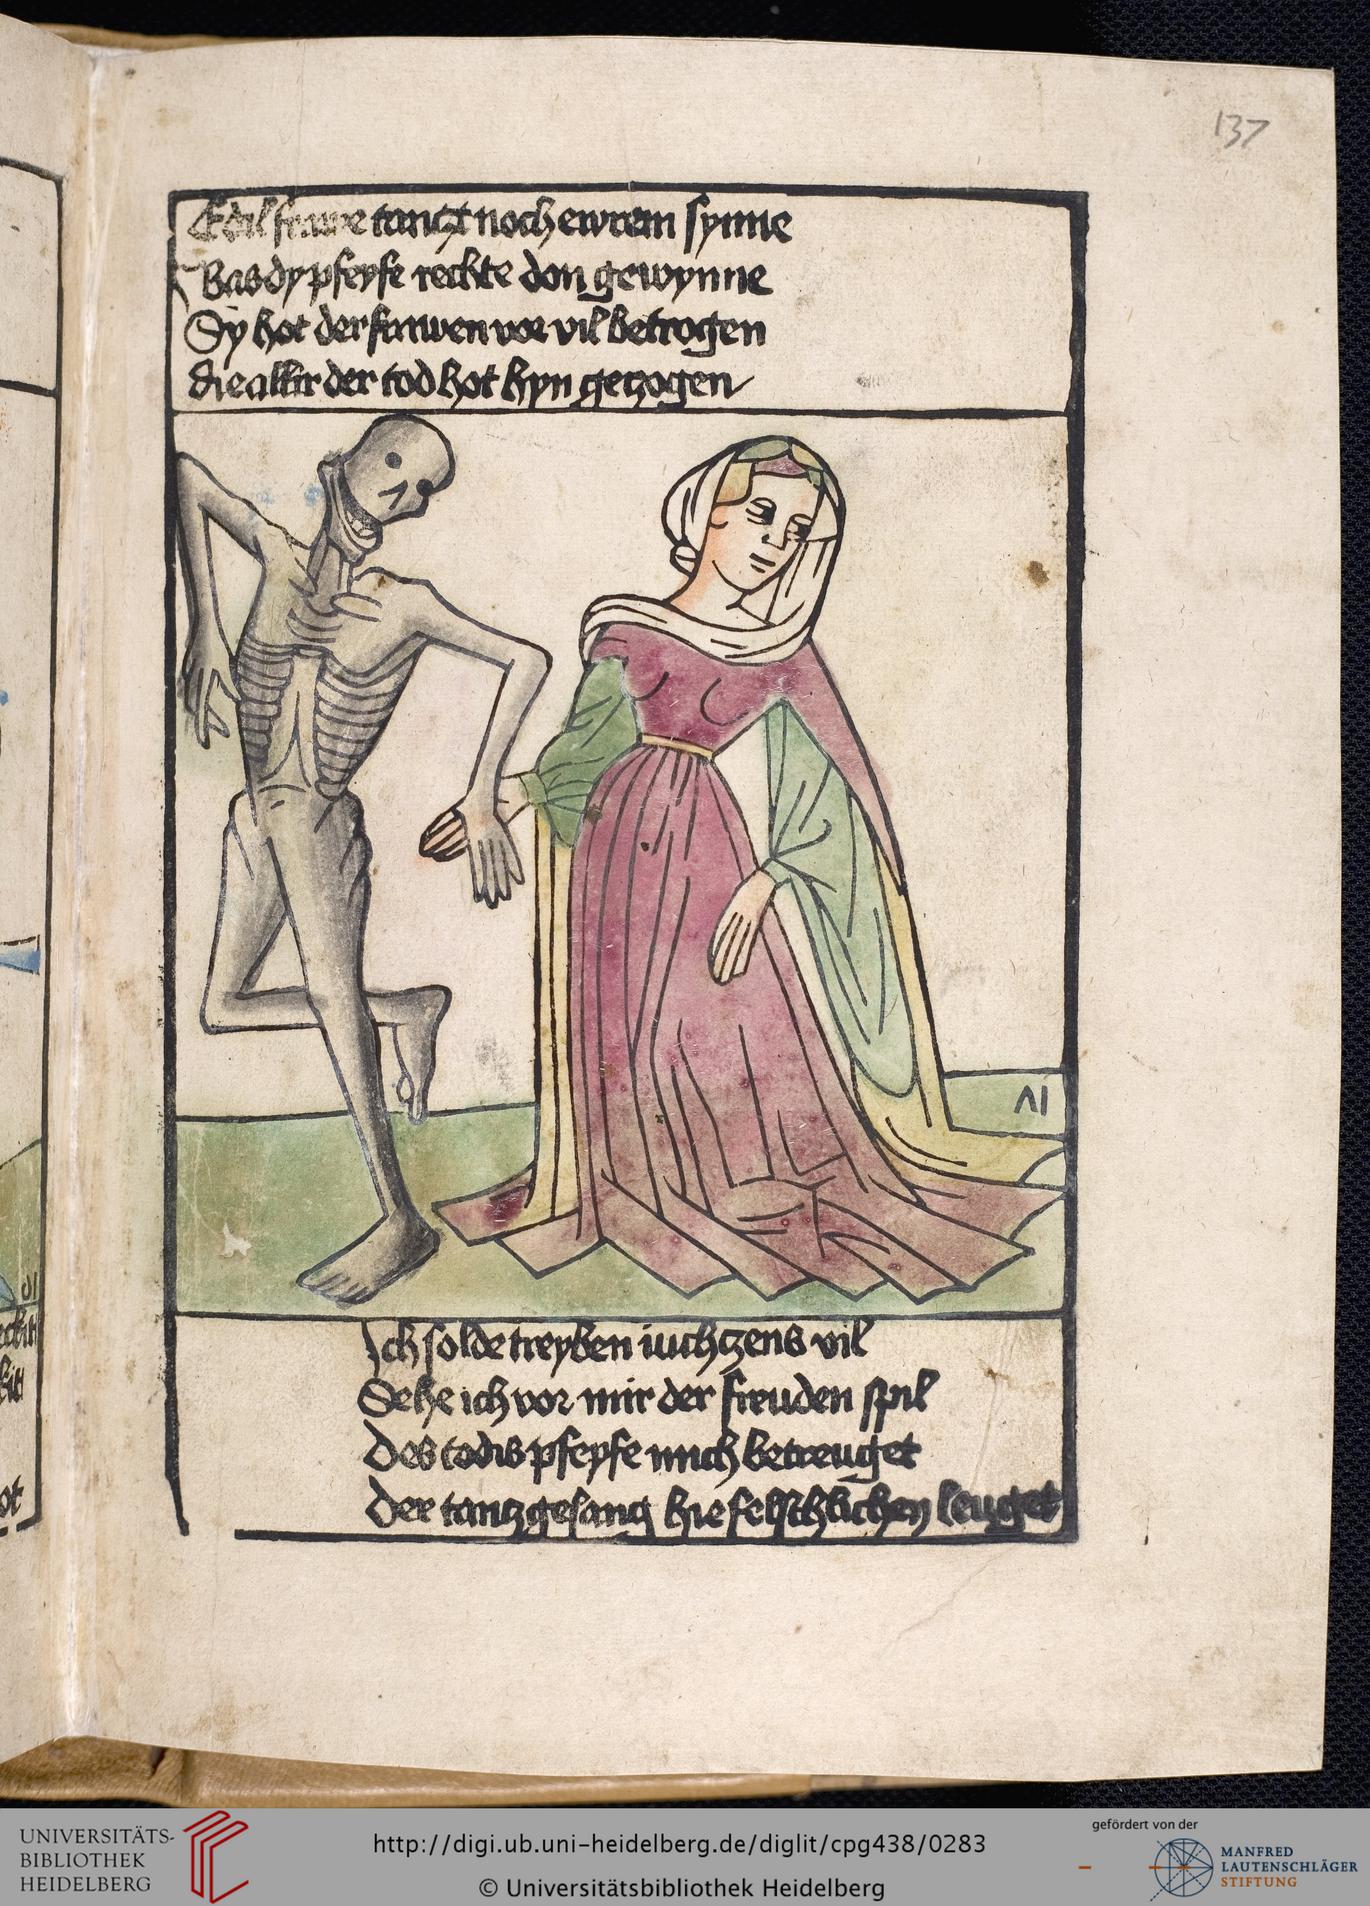 137
Edil frawe tanczt noch ewrem synne
Bas dy pfeyfe rechte don gewynne
Sy hot der frawen vor vil betrogen
die allir der tod hot hyn geczogen
Ich solde treyben iuchczens vil
Sehe ich vor mir der freuden spil
Des todis pfeyfe mich betreuget
Der tancz gesang hie felschlichen leuget
UNIVERSITÄTS-
BIBLIOTHEK
HEIDELBERG
http://digi.ub.uni-heidelberg.de/diglit/cpg438/0283
© Universitätsbibliothek Heidelberg
gefördert von der
MANFRED
LAUTENSCHLÄGER
STIFTUNG